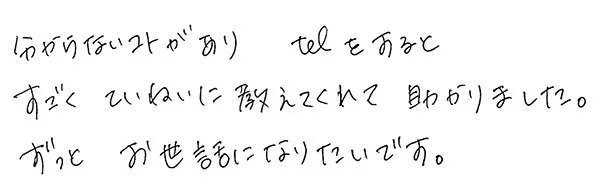 分からないコトがあり telをすると
すごく ていねいに教えてくれて 助かりました。
ずっと お世話になりたいです。